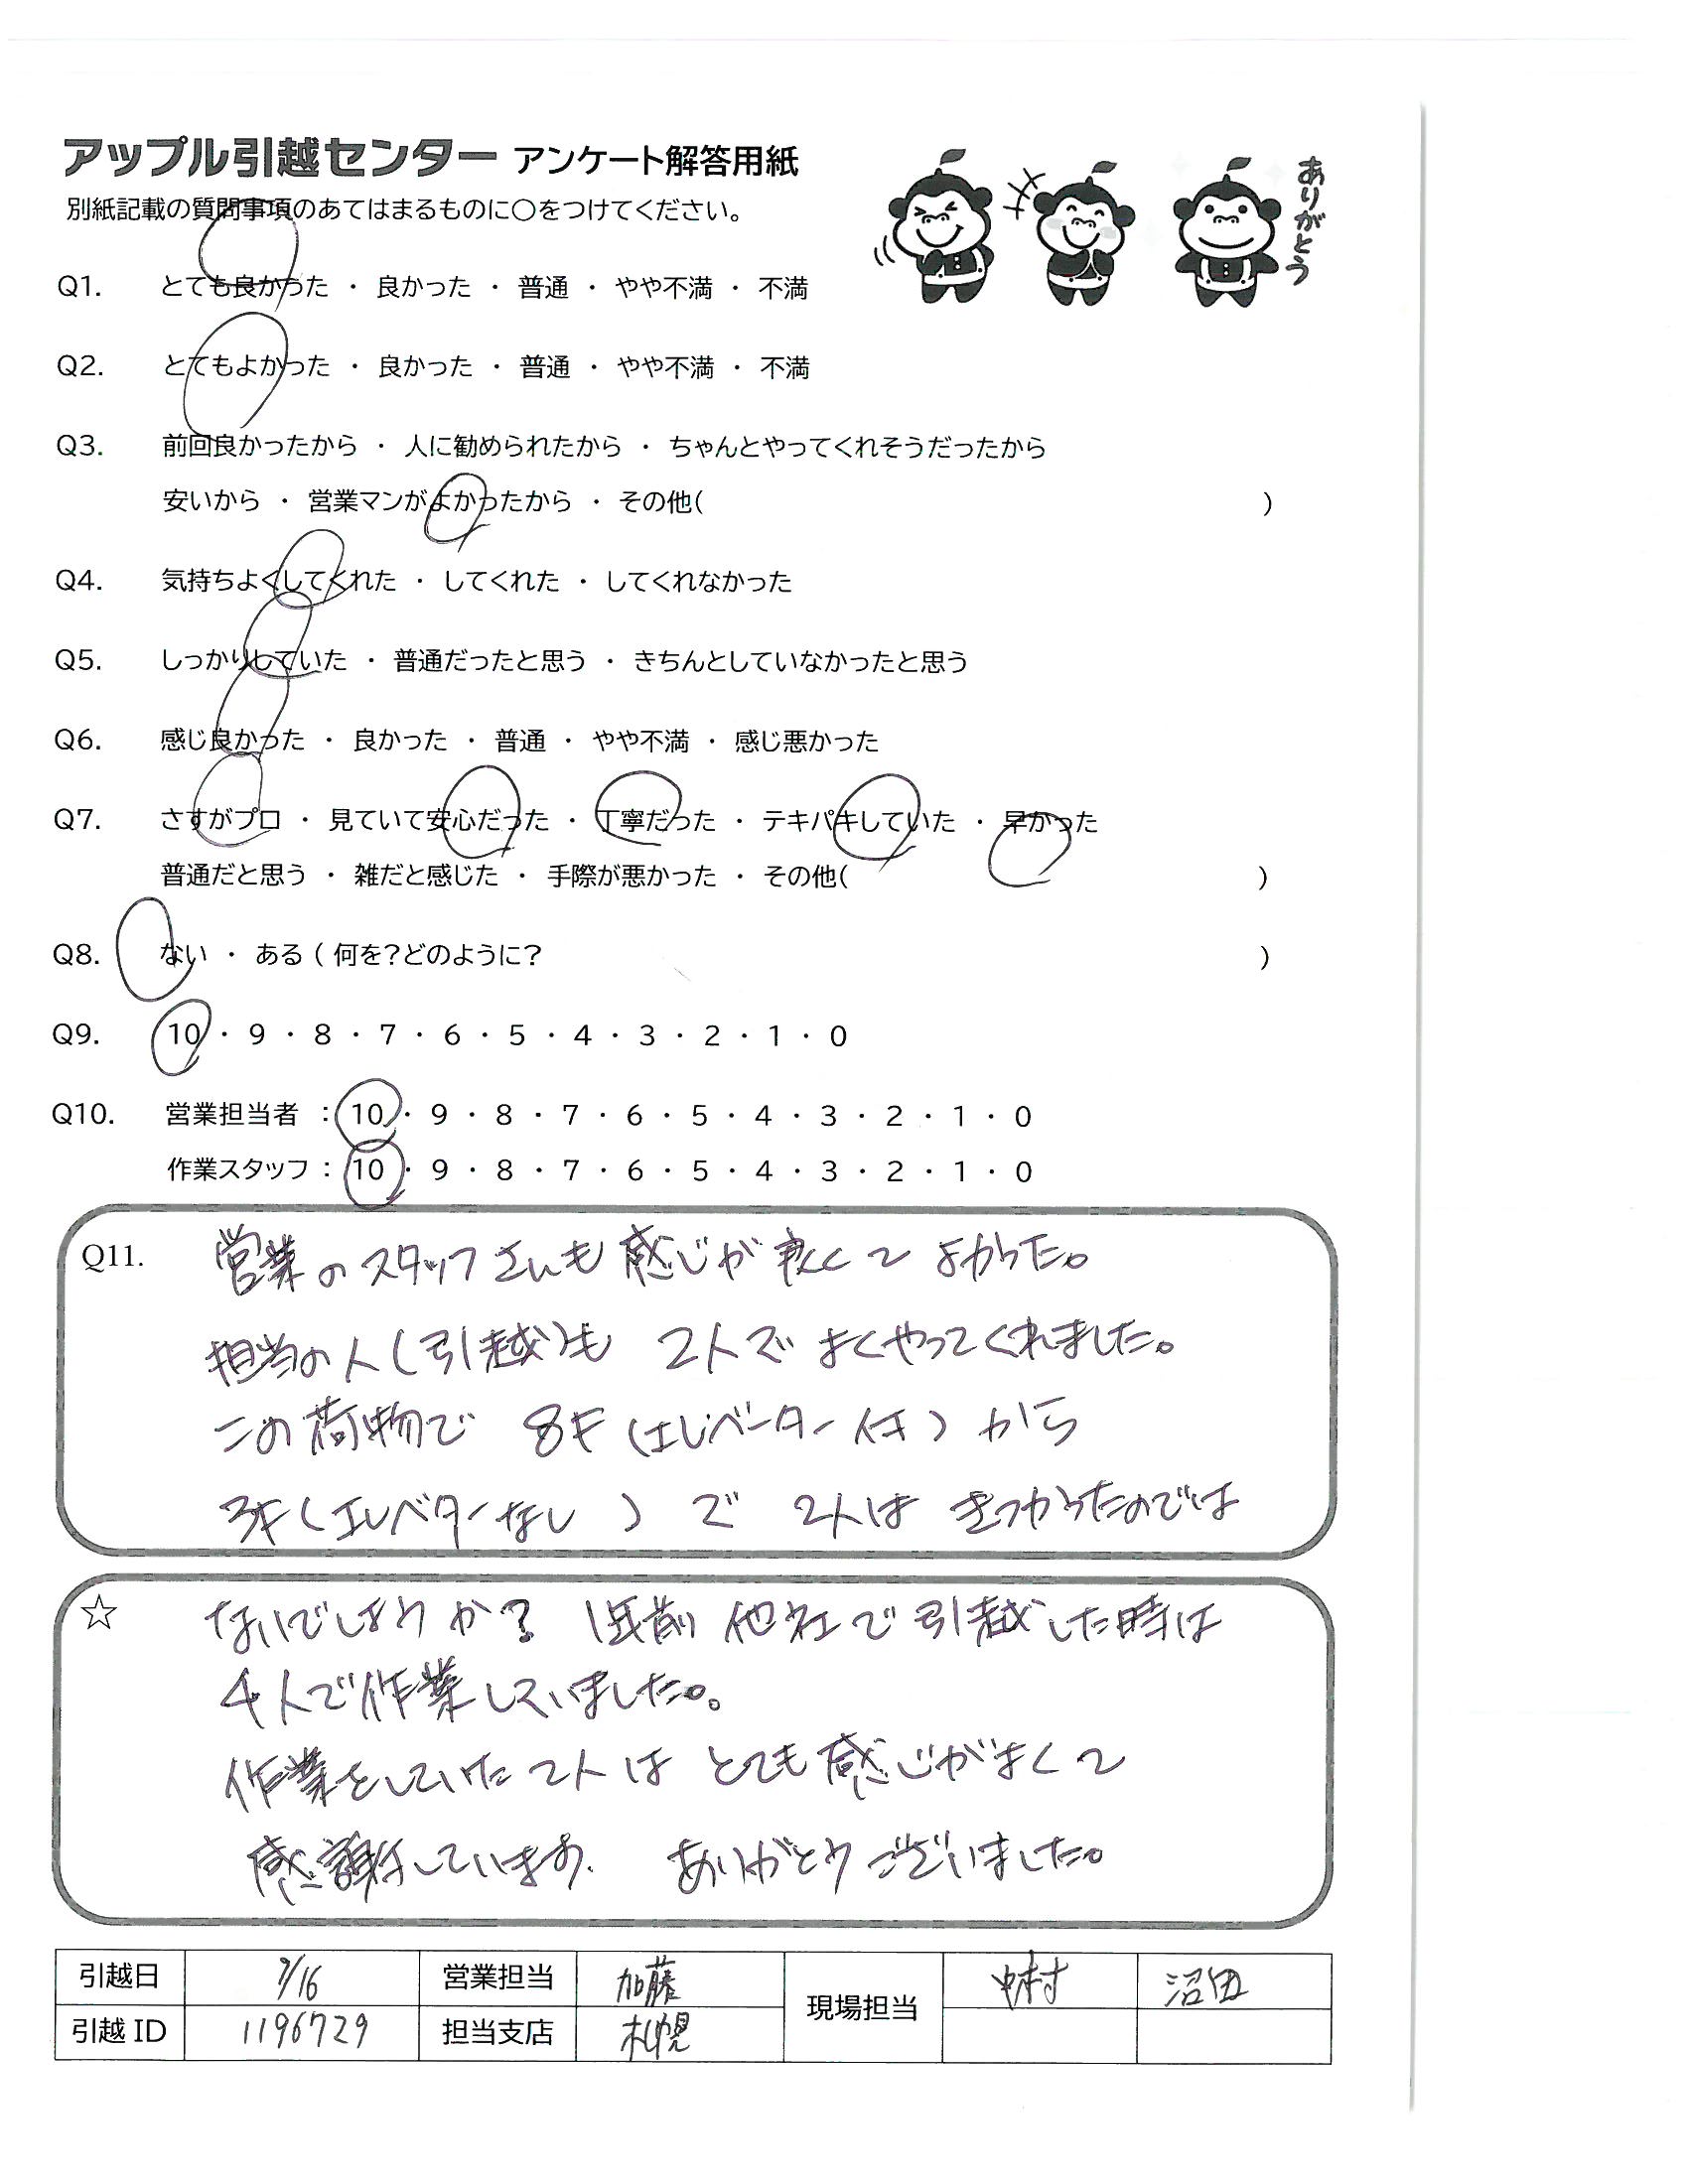 アップル引越センター アンケート解答用紙
別紙記載の質問事項のあてはまるものに○をつけてください。
ありがとう
Q1. とても良かった ・ 良かった ・ 普通 ・ やや不満 ・ 不満
Q2. とてもよかった ・ 良かった ・ 普通 ・ やや不満 ・ 不満
Q3. 前回良かったから ・ 人に勧められたから ・ ちゃんとやってくれそうだったから
安いから ・ 営業マンがよかったから ・ その他( )
Q4. 気持ちよくしてくれた ・ してくれた ・ してくれなかった
Q5. しっかりしていた ・ 普通だったと思う ・ きちんとしていなかったと思う
Q6. 感じ良かった ・ 良かった ・ 普通 ・ やや不満 ・ 感じ悪かった
Q7. さすがプロ ・ 見ていて安心だった ・ 丁寧だった ・ テキパキしていた ・ 早かった
普通だと思う ・ 雑だと感じた ・ 手際が悪かった ・ その他( )
Q8. ない ・ ある ( 何を?どのように? )
Q9. 10 ・ 9 ・ 8 ・ 7 ・ 6 ・ 5 ・ 4 ・ 3 ・ 2 ・ 1 ・ 0
Q10. 営業担当者 : 10 ・ 9 ・ 8 ・ 7 ・ 6 ・ 5 ・ 4 ・ 3 ・ 2 ・ 1 ・ 0
作業スタッフ : 10 ・ 9 ・ 8 ・ 7 ・ 6 ・ 5 ・ 4 ・ 3 ・ 2 ・ 1 ・ 0
Q11. 営業のスタッフさんも感じが良くて よかった。
担当の人(引越)も 2人で よくやってくれました。
この荷物で 8F(エレベーター付)から
3F(エレベターなし)で 2人は きつかったのでは
☆ ないでしょうか? 1年前 他社で引越した時は
4人で作業していました。
作業をしていた2人は とても感じがよくて
感謝しています. ありがとうございました。
引越日 9/16 営業担当 加藤 現場担当 中村 沼田
引越ID 1196729 担当支店 札幌